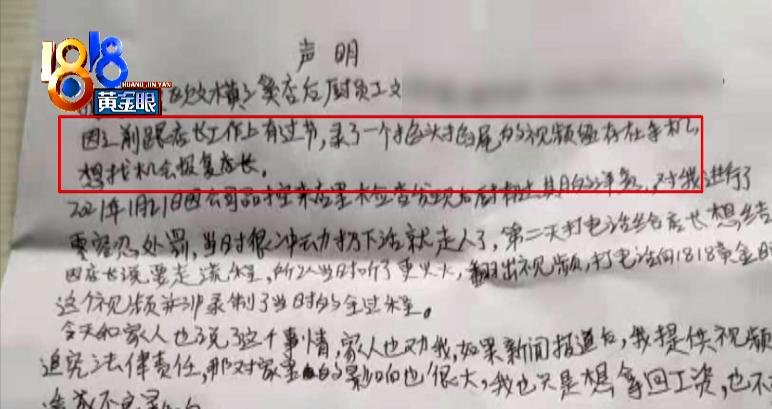 1818
HUANG JIN YAN
黄金眼
声明
横 店后厨员工文
因之前跟店长工作上有过节,录了一个掐头掐尾的视频缓存在手机,
想找机会报复店长。
2021年1月21日因公司品控来店里木 查发现后厨有 期的 ,对我进行了
零容忍处罚,当时很冲动扔下活就走人了,第二天打电话给店长想结
因店长说要走流程,所以当时听了更火大,翻出视频,打电话向1818黄金眼
这个视频并 录制了当时的全过程。
今天和家人也说了这个事情,家人也劝我,如果新闻报道后,我提供视频
追究法律责任,那对家里的影响也很大,我也只是想拿回工资,也不
造成不